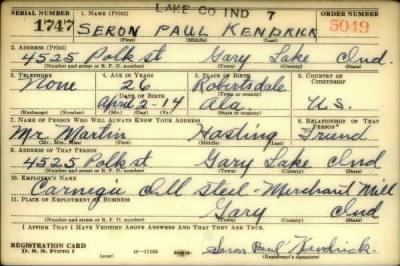 LAKE CO IND 7
SERIAL NUMBER 1. NAME (Print) ORDER NUMBER
1747 SERON PAUL KENDRICK 5049
(First) (Middle) (Last)
2. ADDRESS (Print)
4525 Polk st Gary Lake Ind.
(Number and street or R. F. D. number) (Town) (County) (State)
3. TELEPHONE 4. AGE IN YEARS 5. PLACE OF BIRTH 6. COUNTRY OF CITIZENSHIP
None 26 Robertsdale
DATE OF BIRTH (Town or county)
April 2-14 Ala. U.S.
(Exchange) (Number) (Mo.) (Day) (Yr.) (State or country)
7. NAME OF PERSON WHO WILL ALWAYS KNOW YOUR ADDRESS 8. RELATIONSHIP OF THAT PERSON
Mr. Martin Hasting Friend
(Mr., Mrs., Miss) (First) (Middle) (Last)
9. ADDRESS OF THAT PERSON
4525 Polk st Gary Lake Ind
(Number and street or R. F. D. number) (Town) (County) (State)
10. EMPLOYER'S NAME
Carnegie Ill steel - Merchant Mill
11. PLACE OF EMPLOYMENT OR BUSINESS
Gary Ind
(Number and street or R. F. D. number) (Town) (County) (State)
I AFFIRM THAT I HAVE VERIFIED ABOVE ANSWERS AND THAT THEY ARE TRUE.
REGISTRATION CARD
D. S. S. Form 1 (over) Seron Paul Kendrick.
(Registrant's signature)